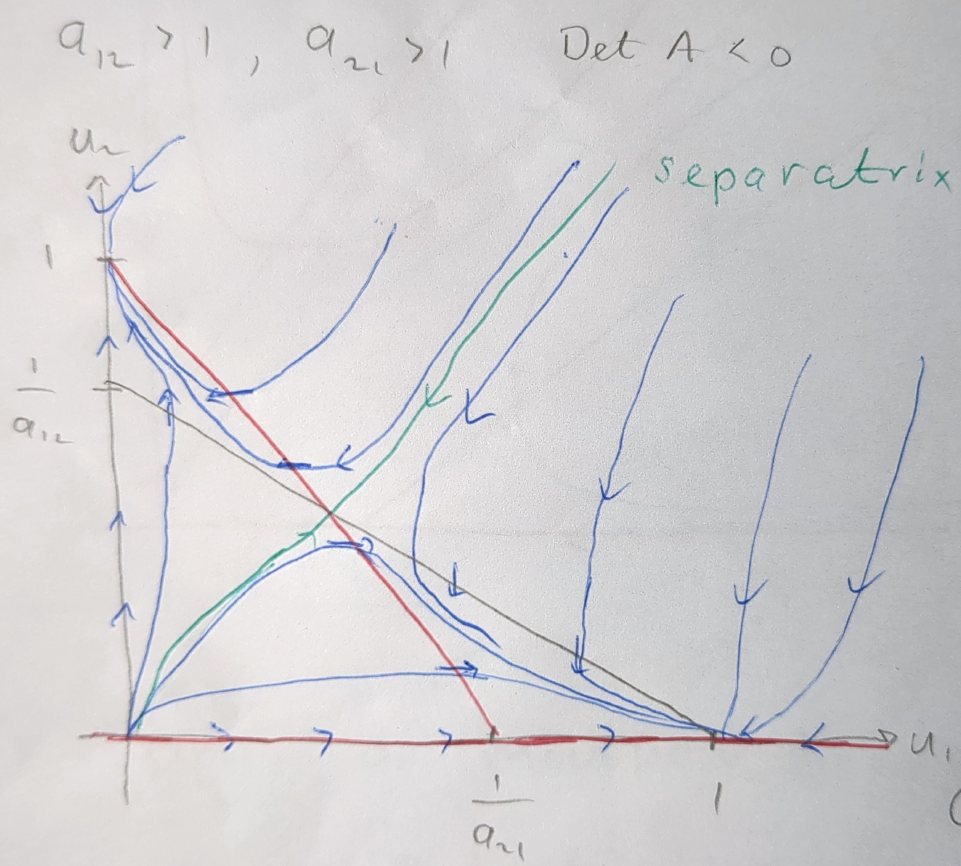 a₁₂ > 1 , a₂₁ > 1 Det A < 0
u₂
separatrix
1
1
a₁₂
u₁
1
a₂₁
1